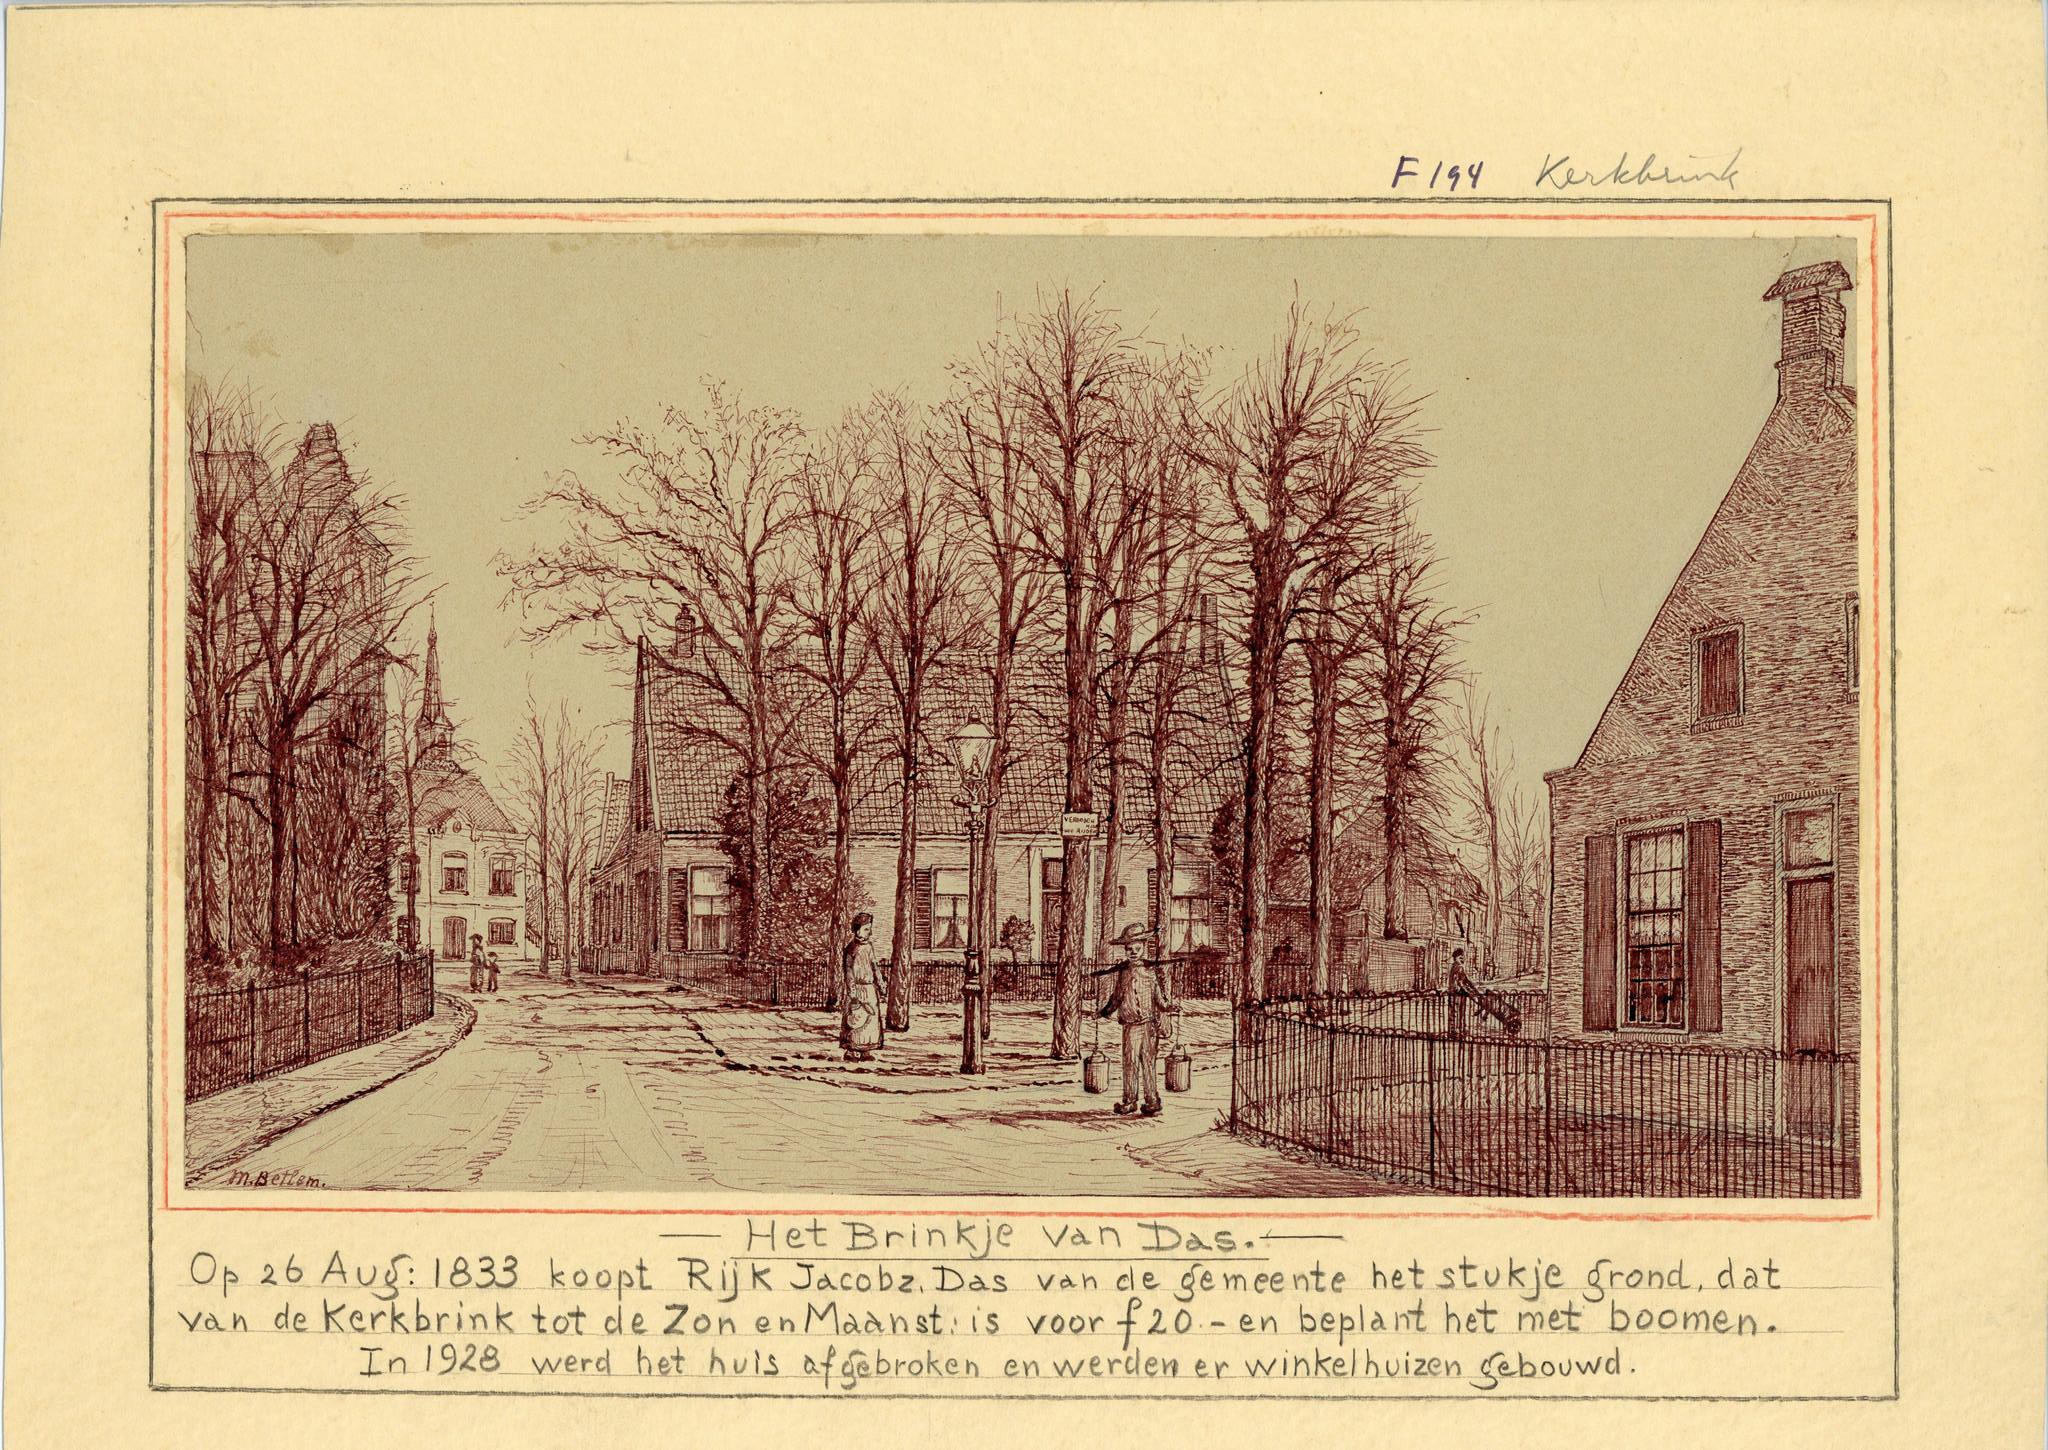 F 194 Kerkbrink
VERBODEN
M. Bettem.
— Het Brinkje van Das. —
Op 26 Aug: 1833 koopt Rijk Jacobz. Das van de gemeente het stukje grond, dat
van de Kerkbrink tot de Zon en Maanst: is voor f 20.- en beplant het met boomen.
In 1928 werd het huis afgebroken en werden er winkelhuizen gebouwd.